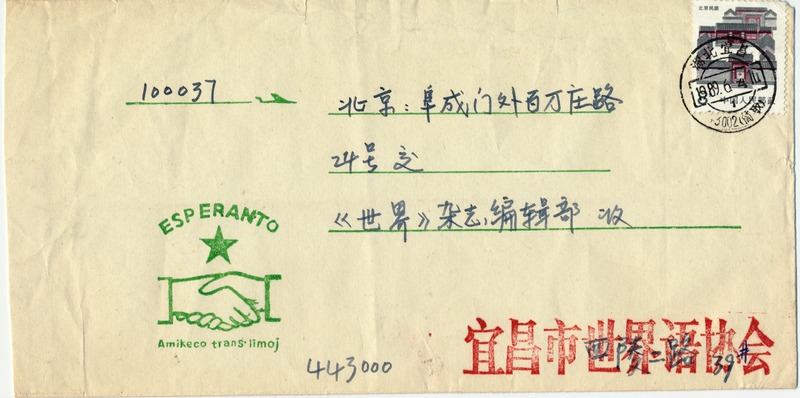 北京民居
湖北宜昌
1989.6.
100037
北京：阜成门外百万庄路
24号交
《世界》杂志编辑部 收
ESPERANTO
Amikeco trans·limoj
宜昌市世界语协会
西陵二路 39#
443000